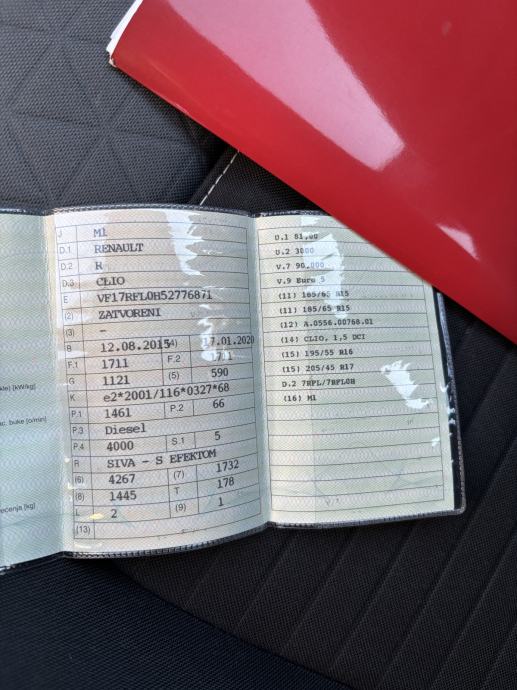 kle) [kW/kg]
ac. buke [o/min]
ećenja [kg]
J M1
D.1 RENAULT
D.2 R
D.3 CLIO
E VF17RFL0H52776871
(2) ZATVORENI
(3) -
B 12.08.2015 (4) 17.01.2020
F.1 1711 F.2 1711
G 1121 (5) 590
K e2*2001/116*0327*68
P.1 1461 P.2 66
P.3 Diesel
P.4 4000 S.1 5
R SIVA - S EFEKTOM
(6) 4267 (7) 1732
(8) 1445 T 178
L 2 (9) 1
(13)
U.1 81,00
U.2 3000
V.7 90,000
V.9 Euro 5
(11) 185/65 R15
(11) 185/65 R15
(12) A.0556.00768.01
(14) CLIO, 1,5 DCI
(15) 195/55 R16
(15) 205/45 R17
D.2 7RFL/7RFL0H
(16) M1